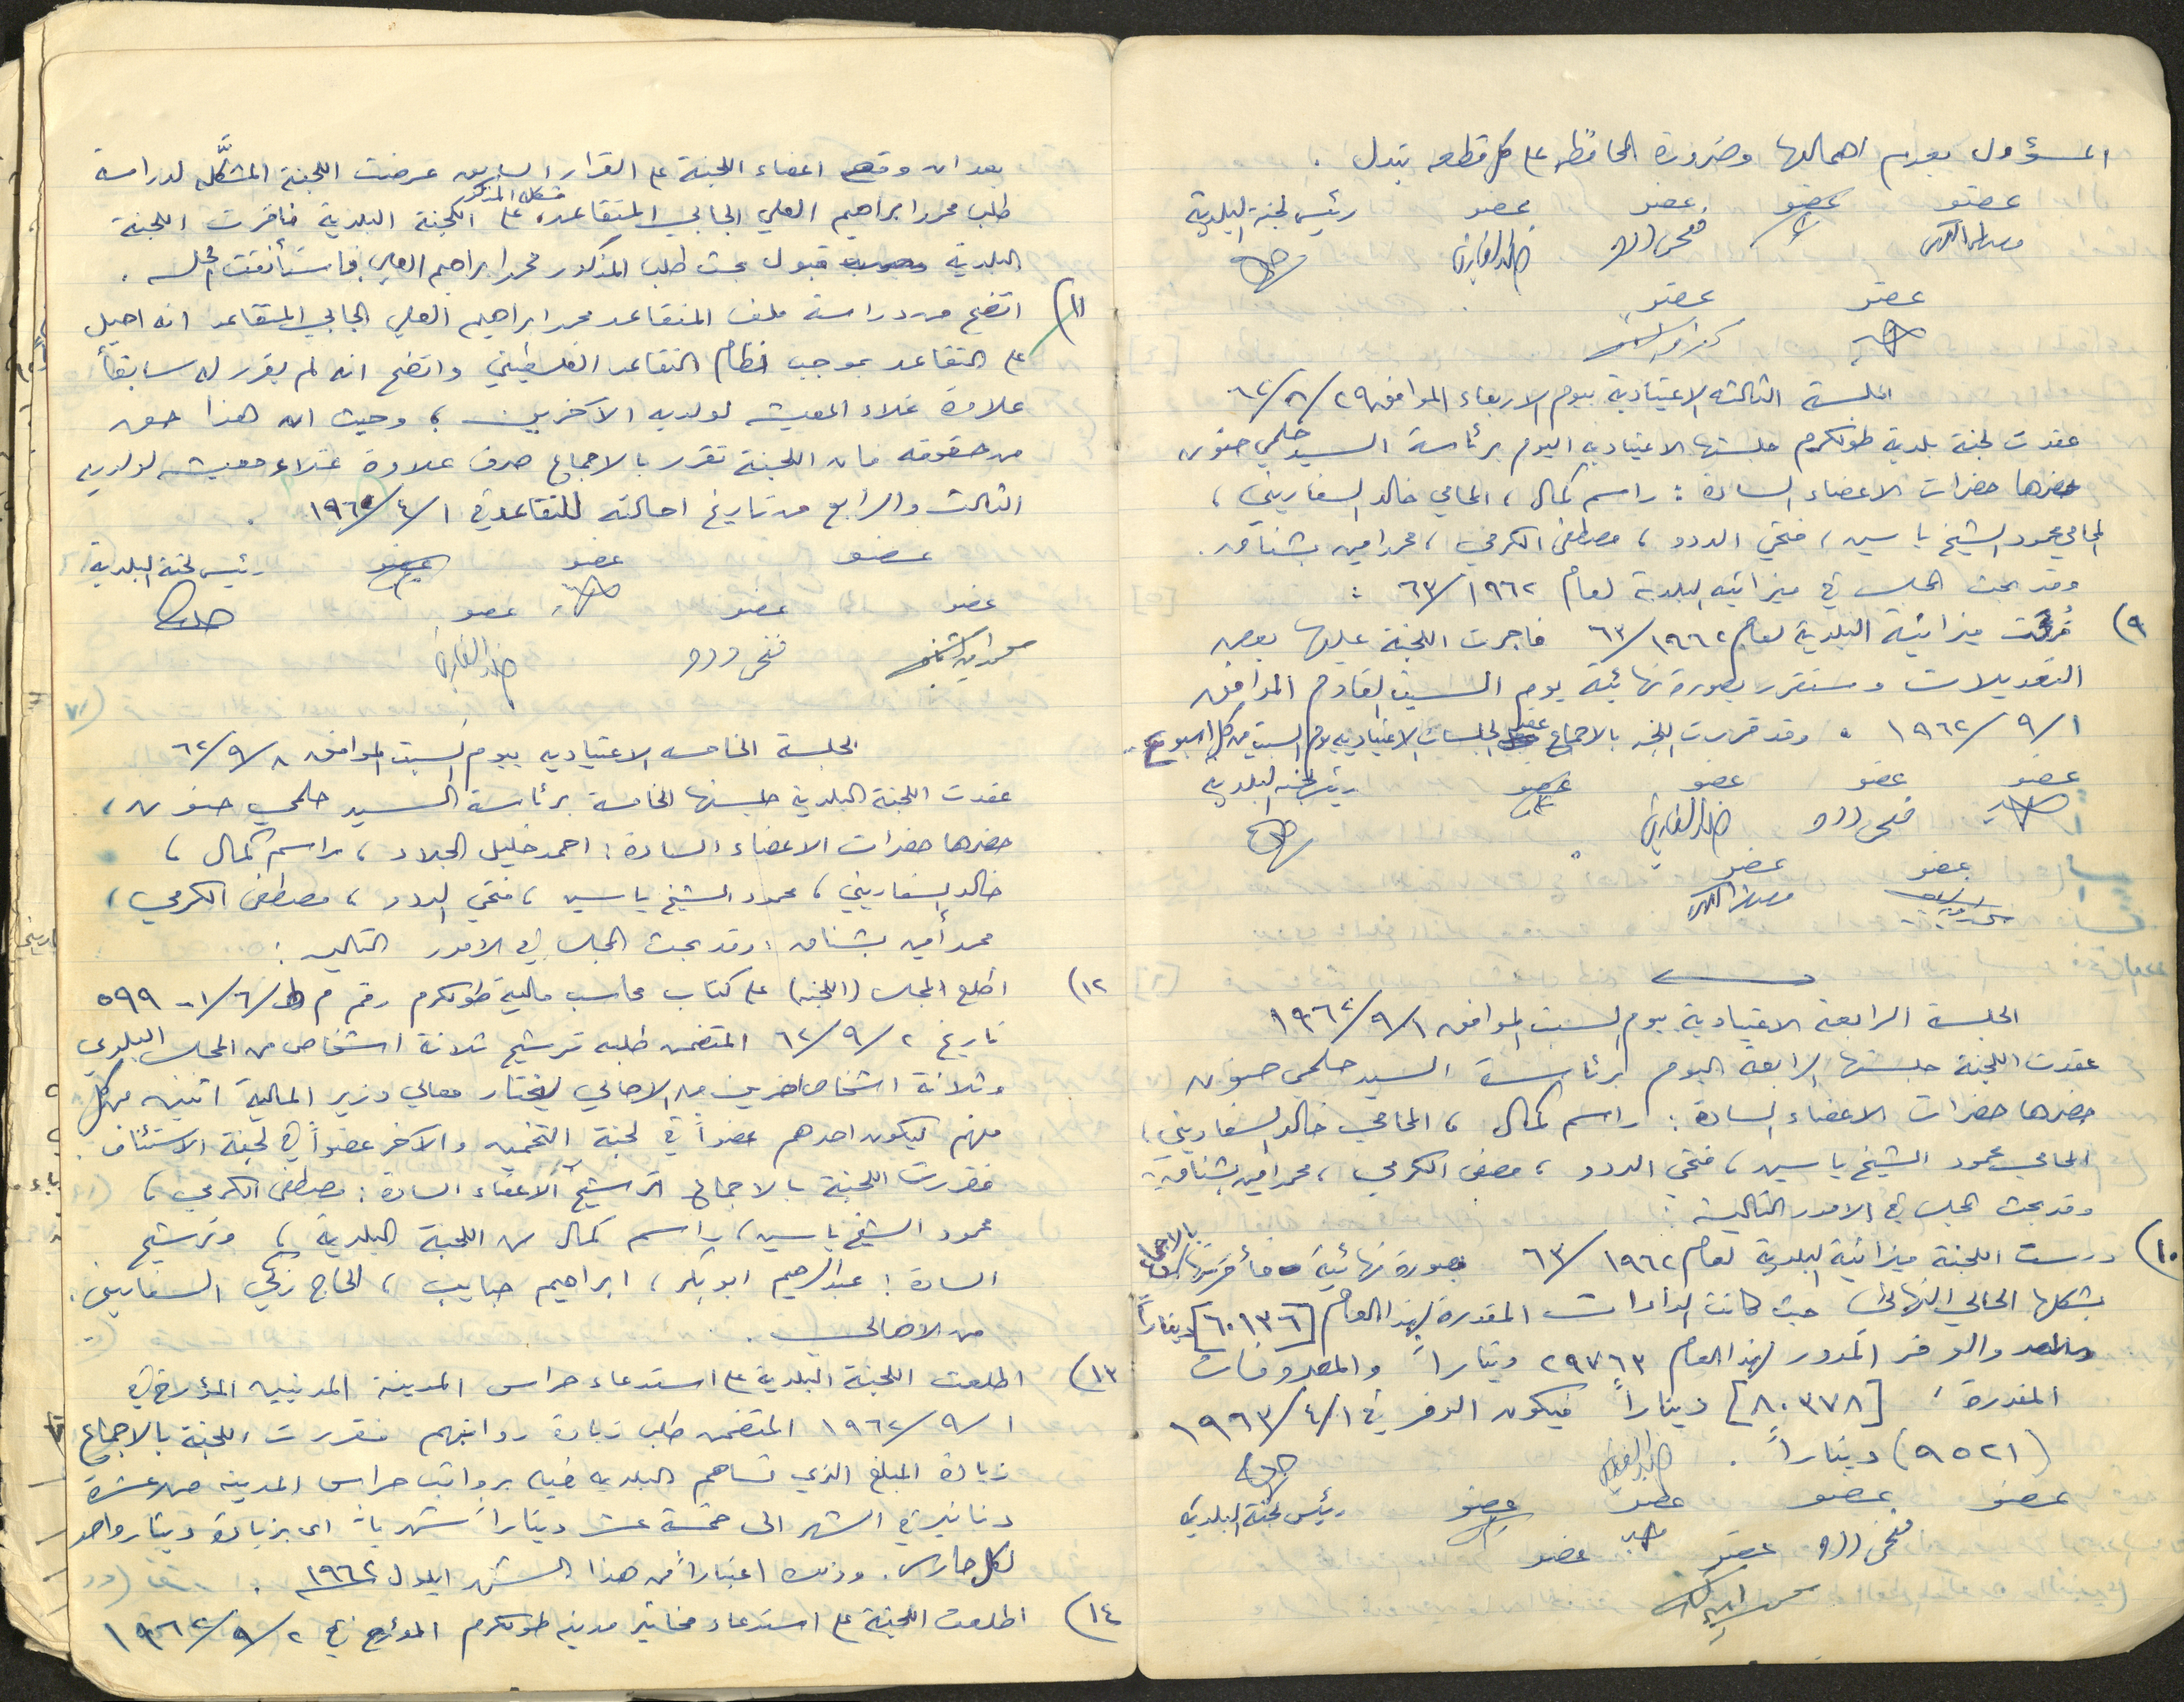 المسؤول بعدم اهمالها وضرورة المحافظه على كل قطعه تبدل .
عضو عضو عضو عضو رئيس لجنة البلدية
عضو عضو
الجلسة الثالثة الاعتيادية بيوم الاربعاء الموافق ٢٩/٨/٦٢
عقدت لجنة بلدية طولكرم جلستها الاعتياديه اليوم برئاسة السيد حلمي حنون
حضرها حضرات الاعضاء السادة : راسم كمال ، المحامي خالد السفاريني ،
المحامي محمود الشيخ ياسين ، فتحي الددو ، مصطفى الكرمي ، محمد امين بشناق .
وقد بحث المجلس في ميزانية البلدية لعام ١٩٦٢/٦٣ :
٩) قرئت ميزانية البلدية لعام ١٩٦٢/٦٣ فاجرت اللجنة عليها بعض
التعديلات وستقرر بصورة نهائية يوم السبت القادم الموافق
١/٩/١٩٦٢ . وقد قررت اللجنه بالاجماع عقد الجلسات الاعتياديه يوم السبت من كل اسبوع .
عضو عضو عضو عضو رئيس لجنة البلدية
فتحي ددو
عضو عضو
الجلسة الرابعة الاعتيادية يوم السبت الموافق ١/٩/١٩٦٢
عقدت اللجنة جلستها الرابعة اليوم برئاسة السيد حلمي حنون
حضرها حضرات الاعضاء السادة : راسم كمال ، المحامي خالد السفاريني ،
المحامي محمود الشيخ ياسين ، فتحي الددو ، مصفى الكرمي ، محمد امين بشناق .
وقد بحث المجلس في الامور التالية :
١٠) درست اللجنة ميزانية البلدية لعام ١٩٦٢/٦٣ بصورة نهائية فأقرتها بالاجماع
بشكلها الحالي النهائي حيث كانت الواردات المقدرة لهذا العام [٦٠١٣٦] ديناراً
والوفر المدور لهذا العام ٢٩٧٦٣ ديناراً والمصروفات
المقدرة ، [٨٠٣٧٨] ديناراً فيكون الوفر في ١/٤/١٩٦٣
(٩٥٢١) ديناراً .
عضو عضو عضو عضو رئيس لجنة البلدية
فتحي ددو عضو عضو
بعد ان وقع اعضاء اللجنة على القرار السابق عرضت اللجنة المشكَّله لدراسة
طلب محمد ابراهيم العلي الجابي المتقاعد، مشكلة المذكور على اللجنة البلدية فاقرت اللجنة
البلدية قبول بحث طلب المذكور محمد ابراهيم العلي فاستأنفت الجلسه .
١١) اتضح من دراسة ملف المتقاعد محمد ابراهيم العلي الجابي المتقاعد انه احيل
على التقاعد بموجب نظام التقاعد الفلسطيني واتضح انه لم يقرر له سابقاً
علاوة غلاء المعيشه لولديه الآخرين ، وحيث ان هذا حق
من حقوقه فان اللجنة تقرر بالاجماع صرف علاوة غلاء معيشه لولديه
الثالث والرابع من تاريخ احالته للتقاعد في ١/٤/١٩٦٢ .
عضو عضو عضو رئيس لجنة البلدية
عضو عضو عضو
فتحي ددو
الجلسة الخامسه الاعتياديه بيوم السبت الموافق ٨/٩/٦٢
عقدت اللجنة البلدية جلستها الخامسة برئاسة السيد حلمي حنون ،
حضرها حضرات الاعضاء السادة : احمد خليل الجلاد ، راسم كمال ،
خالد السفاريني ، محمود الشيخ ياسين ، فتحي الددو ، مصطفى الكرمي ،
محمد أمين بشناق ، وقد بحث المجلس في الامور التاليه :
١٢) اطلع المجلس (اللجنه) على كتاب محاسب مالية طولكرم رقم م ط/٦/١- ٥٩٩
تاريخ ٢/٩/٦٢ المتضمن طلبه ترشيح ثلاثة اشخاص من المجلس البلدي
وثلاثة اشخاص اخرين من الاهالي ليختار معالي وزير المالية اثنين من كل
منهم ليكون احدهم عضواً في لجنة التخمين والآخر عضواً في لجنة الاستئناف .
فقررت اللجنة بالاجماع ترشيح الأعضاء السادة : مصطفى الكرمي ،
محمود الشيخ ياسين ، راسم كمال من اللجنة البلدية ، وترشيح
السادة : عبد الرحيم ابو بكر ، ابراهيم حبايب ، الحاج زكي السفاريني .
من الاهالي .
١٣) اطلعت اللجنة البلدية على استدعاء حراس المدينة المدنيين المؤرخ في
١/٩/١٩٦٢ المتضمن طلب زيادة رواتبهم فقررت اللجنة بالاجماع
زيادة المبلغ الذي تساهم البلديه فيه برواتب حراس المدينه من عشرة
دنانير في الشهر الى خمسة عشر ديناراً شهرياً اي بزيادة دينار واحد
لكل حارس . وذلك اعتباراً من هذا الشهر ايلول ١٩٦٢ .
١٤) اطلعت اللجنة على استدعاء مخاتير مدينه طولكرم المؤرخ في ٢/٩/١٩٦٢